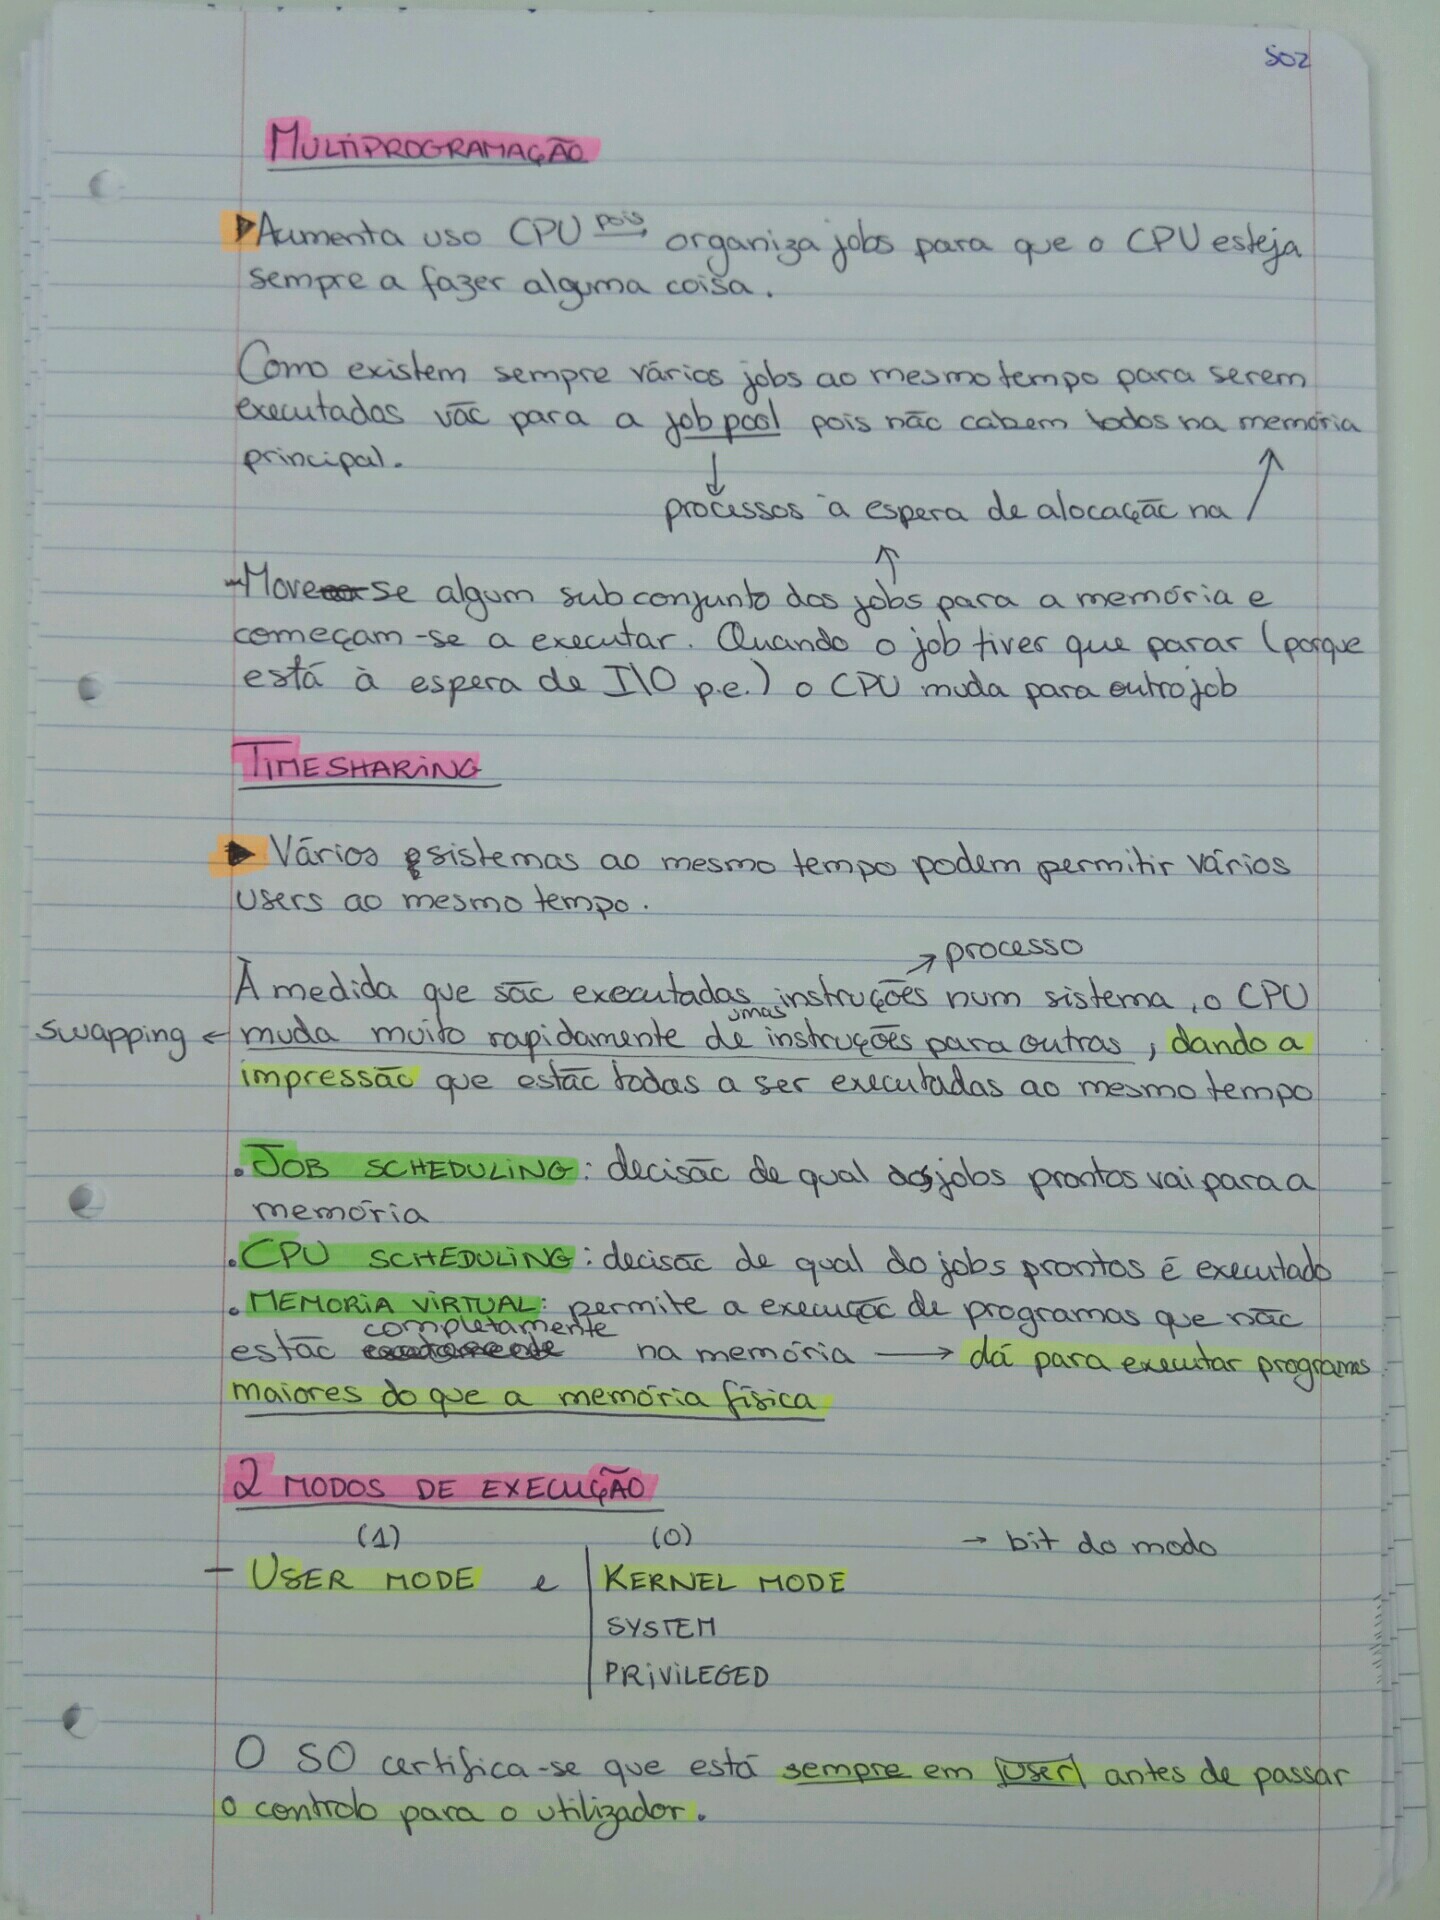 SO2
MULTIPROGRAMAÇÃO
Aumenta uso CPU pois → organiza jobs para que o CPU esteja
sempre a fazer alguma coisa.
Como existem sempre vários jobs ao mesmo tempo para serem
executados vão para a job pool pois não cabem todos na memória
principal.
processos à espera de alocação na
- Move-se algum subconjunto dos jobs para a memória e
começam-se a executar. Quando o job tiver que parar (porque
está à espera de I\O p.e.) o CPU muda para outro job
TIMESHARING
Vários sistemas ao mesmo tempo podem permitir vários
users ao mesmo tempo.
→ processo
À medida que são executadas instruções num sistema, o CPU
swapping ← muda muito rapidamente de umas instruções para outras, dando a
impressão que estão todas a ser executadas ao mesmo tempo
. JOB SCHEDULING: decisão de qual dos jobs prontos vai para a
memória
. CPU SCHEDULING: decisão de qual do jobs prontos é executado
. MEMORIA VIRTUAL: permite a execução de programas que não
estão completamente na memória → dá para executar programas
maiores do que a memória física
2 MODOS DE EXECUÇÃO
(1) (0) → bit do modo
- USER MODE e KERNEL MODE
SYSTEM
PRIVILEGED
O SO certifica-se que está sempre em user antes de passar
o controlo para o utilizador.